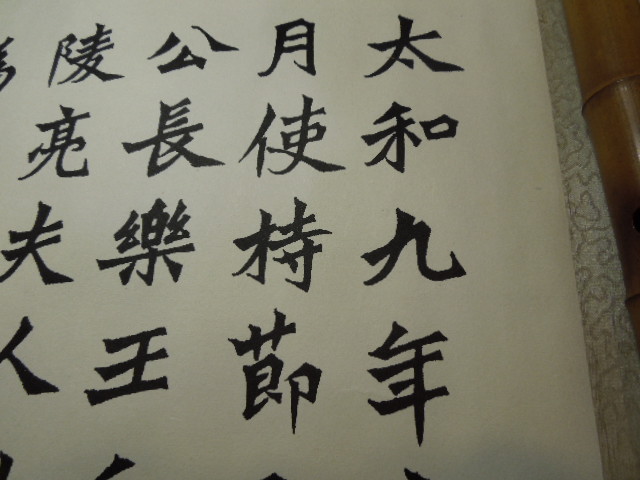 太和九年
月使持節
公長樂王
陵亮夫人